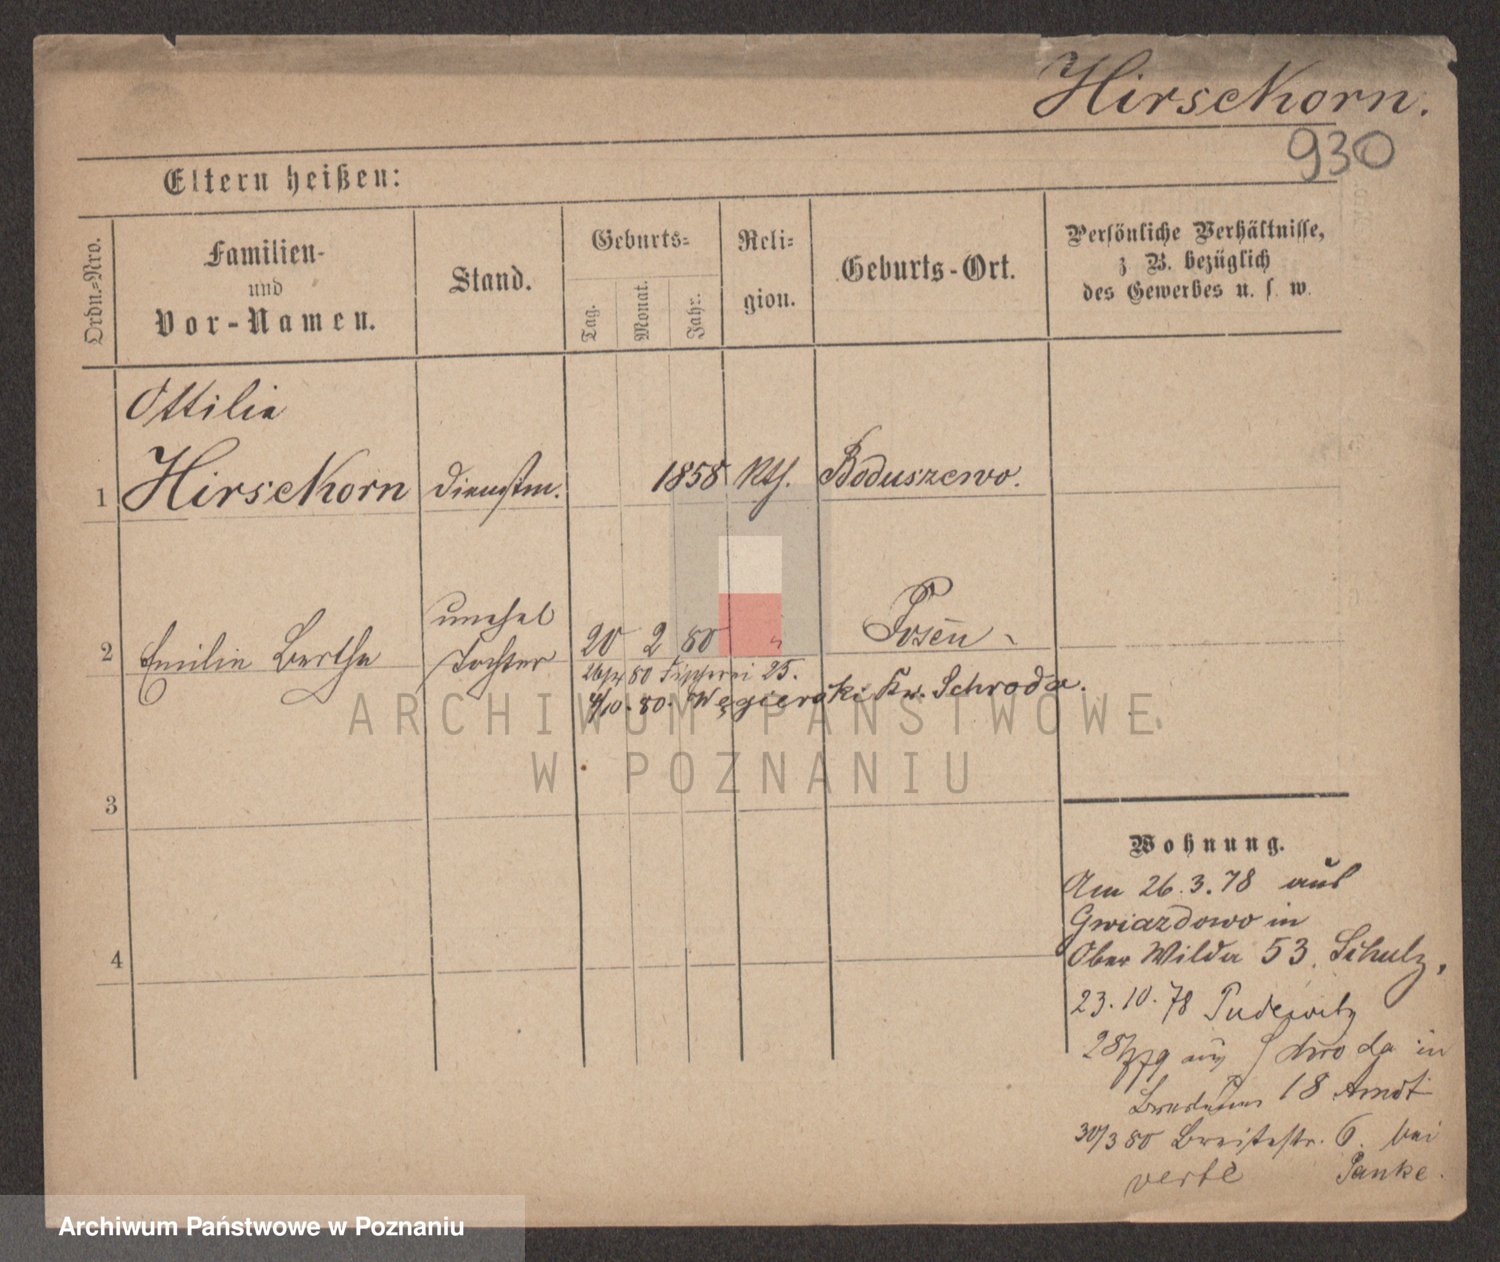 Hirsekorn.
930
Eltern heißen:
Ordn.-Nro.
Familien-
und
Vor-Namen.
Stand.
Geburts-
Tag.
Monat.
Jahr.
Reli-
gion.
Geburts-Ort.
Persönliche Verhältnisse,
z B. bezüglich
des Gewerbes u. s w.
Ottilie
1 Hirsekorn dienstm. 1858 kth. Boduszewo.
unehel
2 Emilie Bertha Tochter 20 2 80 " Posen
80 Fischerei 25.
4/10. 80. Węgierski Kr. Schroda.
3
4
Wohnung.
Am 26.3.78 aus
Gwiazdowo in
Ober Wilda 53. Schulz,
23.10.78 Pudewitz
aus Schroda in
18 Arndt
30/3 80 Breitestr. 6. bei
verte Panke.
ARCHIWUM PAŃSTWOWE
W POZNANIU
Archiwum Państwowe w Poznaniu